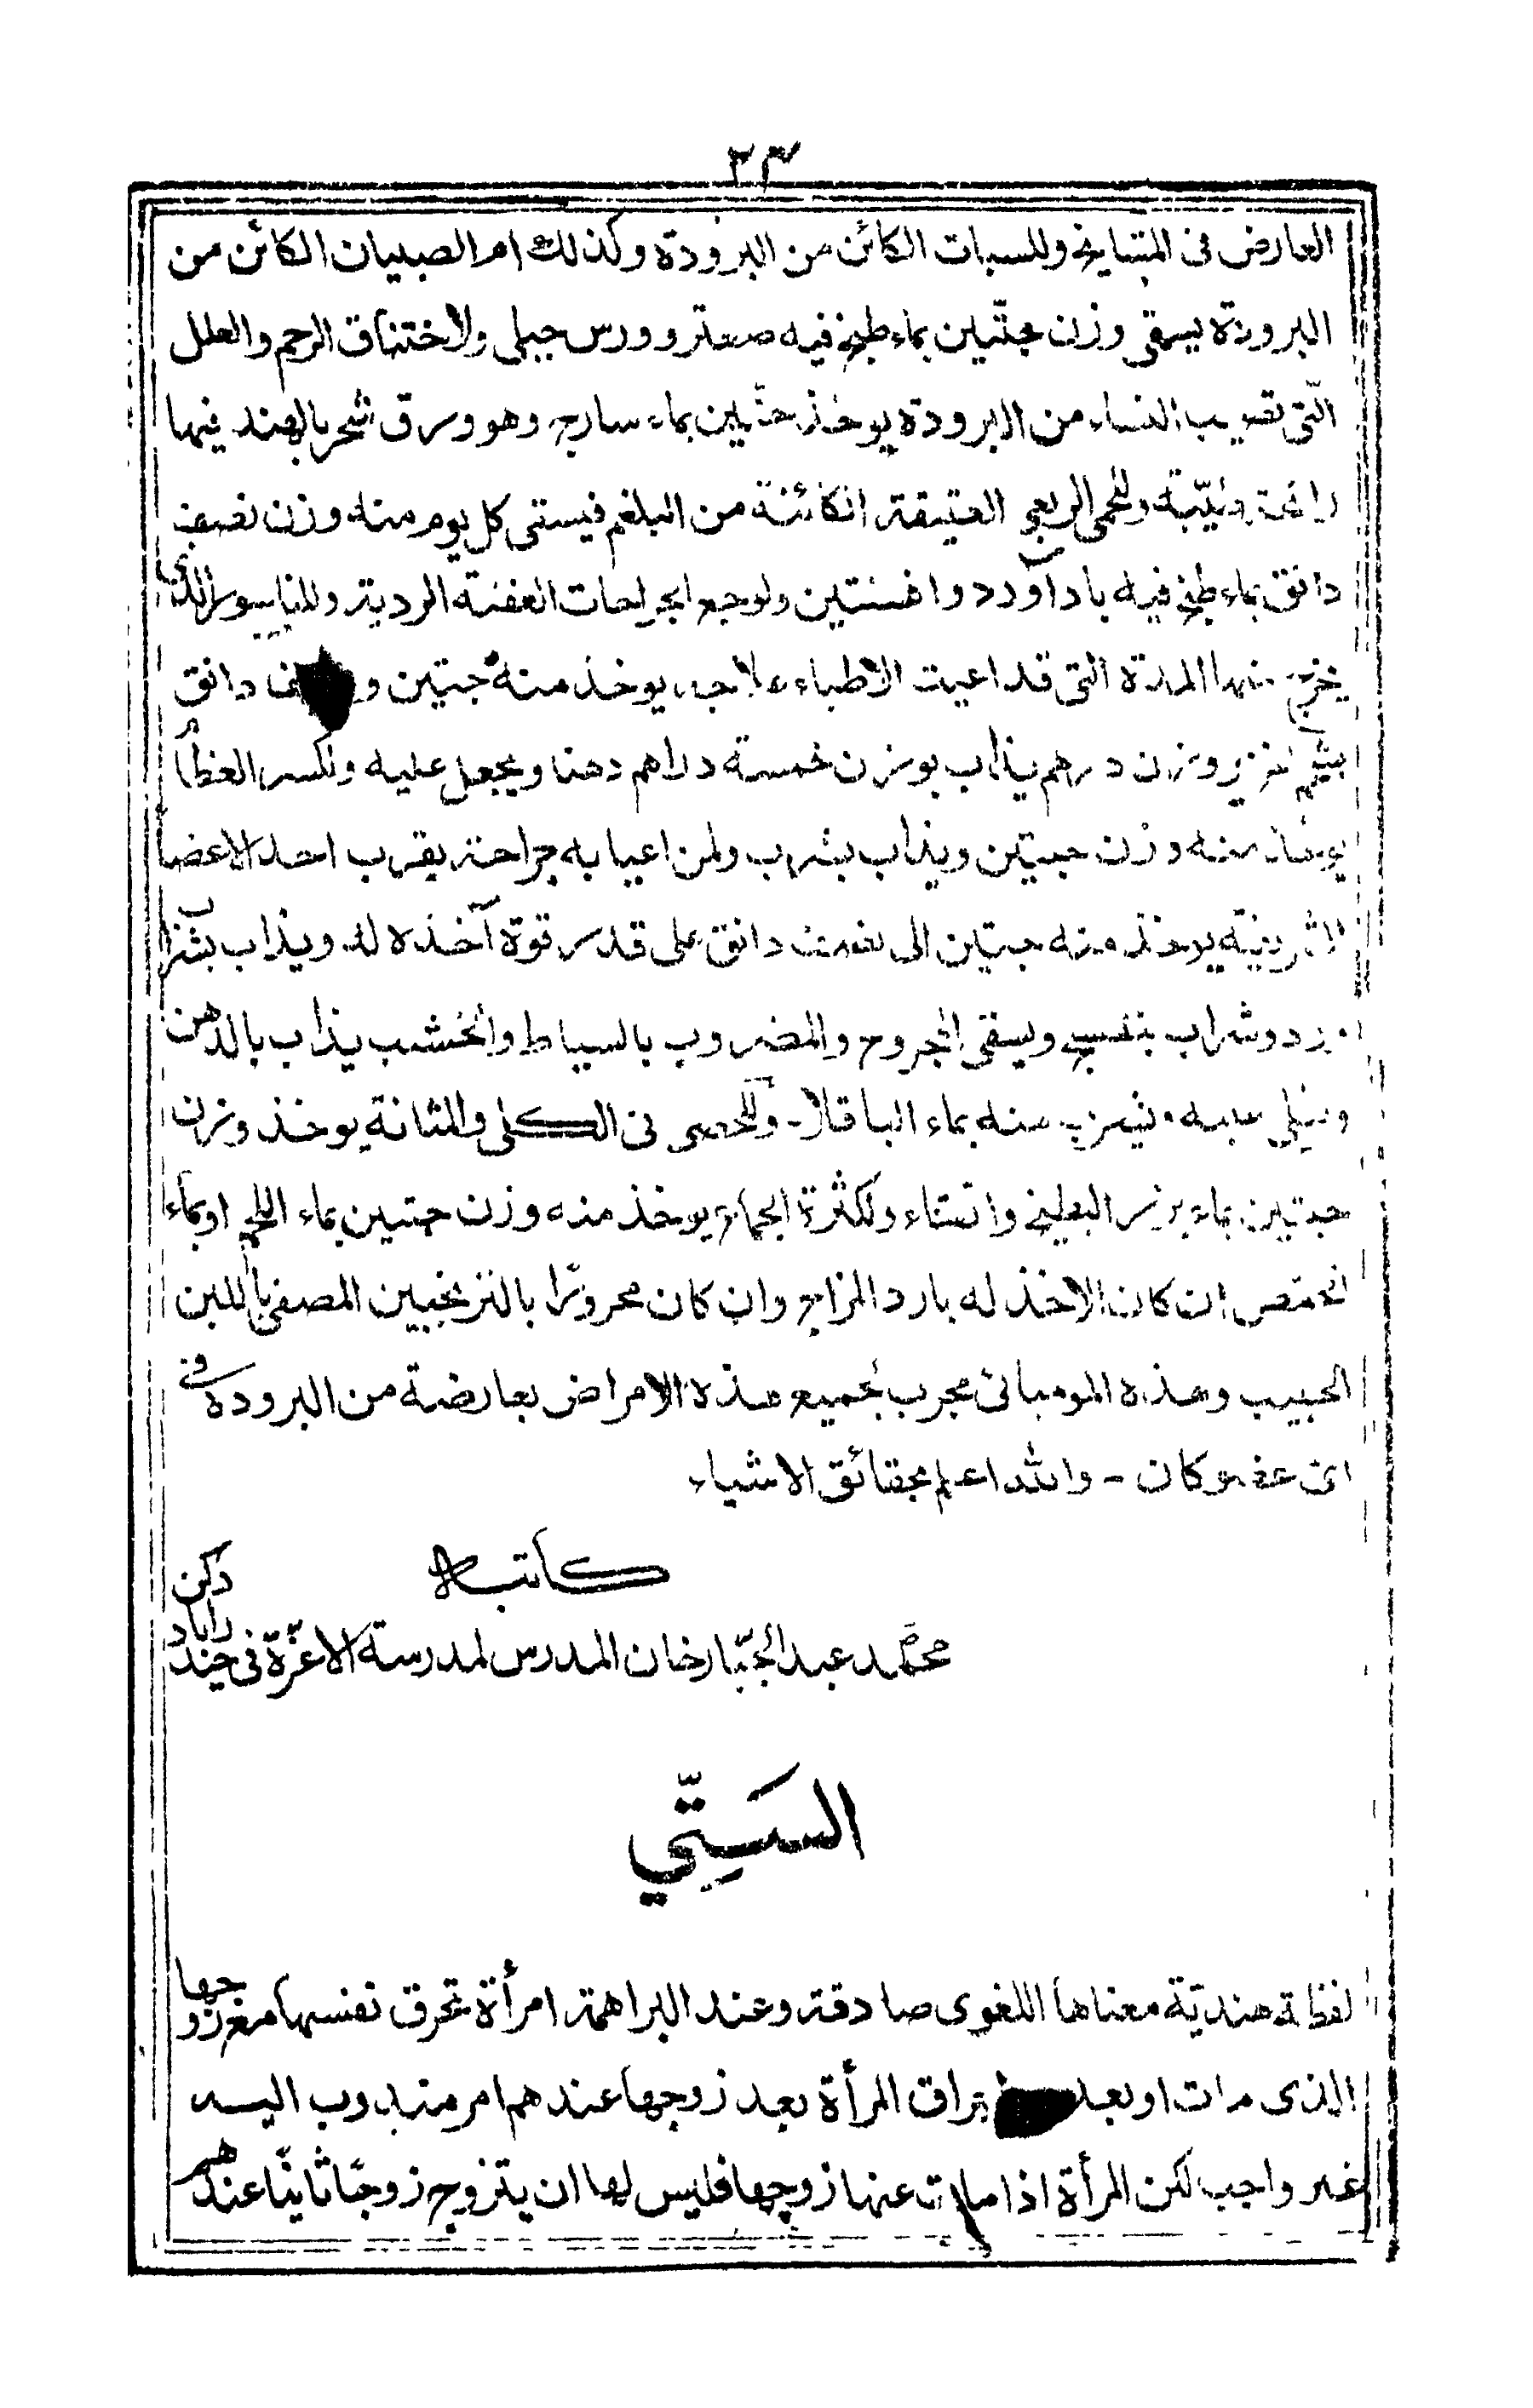 ٢٣
العارض فى المشايخ وللسبات الكائن من البرودة وكذلك ام الصبيان الكائن من
البرودة يسقى وزن حبتين بماء طبخ فيه صعتر وورس جبلى ولاختناق الرحم والعلل
التى تصيب النساء من البرودة يوخذ حبتين بماء سارج وهو ورق شجر بالهند فيها
رائحة طيّبة وللحمى الربع العتيقة الكائنة من البلغم فيسقى كل يوم منه وزن نصف
دانق بماء طبخ فيه باداآورد وافسنتين ولوجع الجراحات العفنة الردية وللناسور الذى
يخرج منها المدة التى قد اعيت الاطباء علاجه يوخذ منه حبتين و دانق
بشحم وزن درهم يذاب بوزن خمسة دراهم دهنا ويجعل عليه ولكسر العظام
يوخذ منه وزن حبتين ويذاب بشرب ولمن اعيا به جراحة بقرب احد الاعضا
يوخذ منه حبتين الى نصف دانق على قدر قوة آخذه له ويذاب بشراب
وشراب بنفسج ويسقى المجروح والمضروب بالسياط والخشب يذاب بالدهن
منه بماء الباقلا - وللحصى فى الكلى والمثانة يوخذ وزن
حبتين بماء بزر البطيخ والقثاء ولكثرة الجماع يوخذ منه وزن حبتين بماء اللحم اوبماء
الحمّص ان كان الاخذ له بارد المزاج وان كان محرورًا بالترنجبين المصفى باللبن
الحبيب وهذه الموميائى مجرب لجميع هذه الامراض بعارضة من البرودة فى
اى عضو كان - والله اعلم بحقائق الاشياء
كاتبه
محمّد عبد الجبّار خان المدرس لمدرسة الاعزّة فى حيدراباد دكن
السَتِّي
لفظة هنديّة معناها اللغوى صادقة وعند البراهمة امرأة تحرق نفسها مع زوجها
الذى مات او بعد المرأة بعد زوجها عندهم امر مندوب اليه
غير واجب لكن المرأة اذا مات عنها زوجها فليس لها ان يتزوج زوجًا ثانيًا عندهم